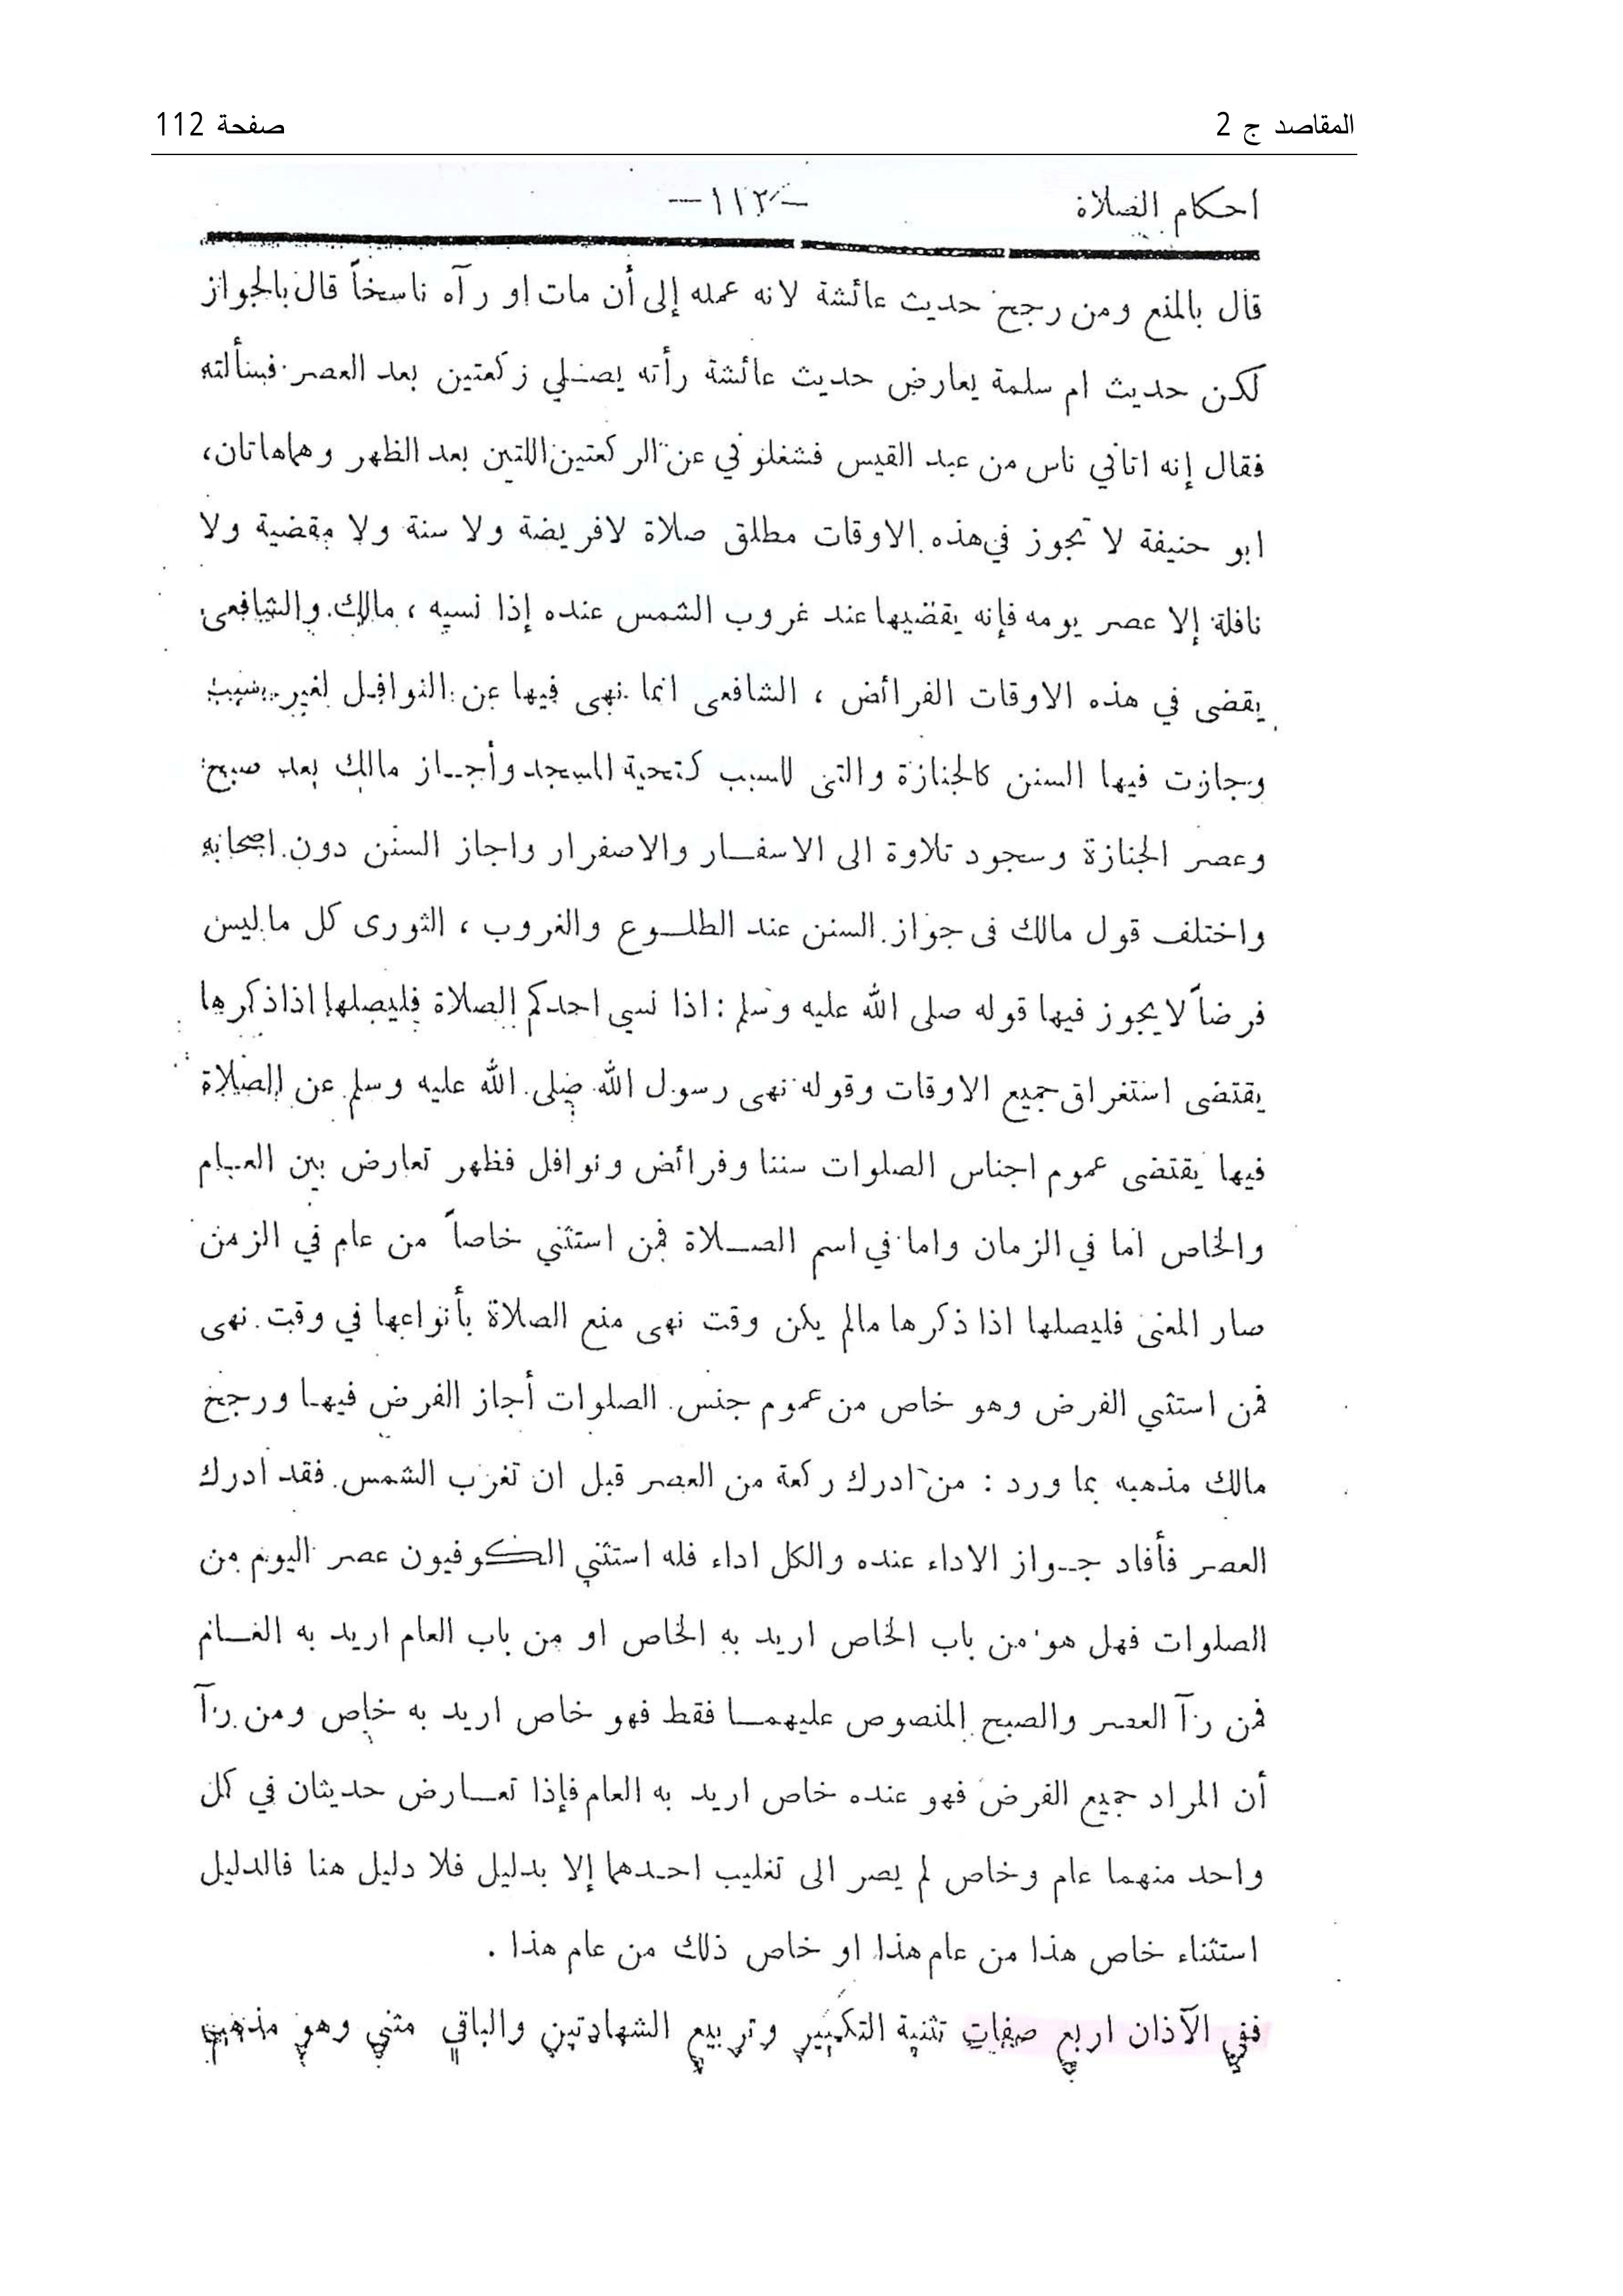 المقاصد ج 2
صفحة 112
احكام الصلاة
— ١١٢ —
قال بالمنع ومن رجح حديث عائشة لانه عمله إلى أن مات او رآه ناسخاً قال بالجواز
لكن حديث ام سلمة يعارض حديث عائشة رأته يصلي ركعتين بعد العصر فسألته
فقال إنه اتاني ناس من عبد القيس فشغلوني عن الركعتين اللتين بعد الظهر وهما هاتان،
ابو حنيفة لا تجوز في هذه الاوقات مطلق صلاة لا فريضة ولا سنة ولا مقضية ولا
نافلة إلا عصر يومه فإنه يقضيها عند غروب الشمس عنده إذا نسيه ، مالك والشافعى
يقضى في هذه الاوقات الفرائض ، الشافعى انما نهى فيها عن النوافل لغير سبب
وجازت فيها السنن كالجنازة والتى للسبب كتحية المسجد وأجاز مالك بعد صبح
وعصر الجنازة وسجود تلاوة الى الاسفار والاصفرار واجاز السنن دون اصحابه
واختلف قول مالك فى جواز السنن عند الطلوع والغروب ، الثورى كل ما ليس
فرضاً لا يجوز فيها قوله صلى الله عليه وسلم : اذا نسي احدكم الصلاة فليصلها اذا ذكرها
يقتضى استغراق جميع الاوقات وقوله نهى رسول الله صلى الله عليه وسلم عن الصلاة
فيها يقتضى عموم اجناس الصلوات سننا وفرائض ونوافل فظهر تعارض بين العام
والخاص اما في الزمان واما في اسم الصلاة فمن استثني خاصاً من عام في الزمن
صار المعنى فليصلها اذا ذكرها مالم يكن وقت نهى منع الصلاة بأنواعها في وقت نهى
فمن استثني الفرض وهو خاص من عموم جنس الصلوات أجاز الفرض فيها ورجح
مالك مذهبه بما ورد : من ادرك ركعة من العصر قبل ان تغرب الشمس فقد ادرك
العصر فأفاد جواز الاداء عنده والكل اداء فله استثني الكوفيون عصر اليوم من
الصلوات فهل هو من باب الخاص اريد به الخاص او من باب العام اريد به العام
فمن رآ العصر والصبح المنصوص عليهما فقط فهو خاص اريد به خاص ومن رآ
أن المراد جميع الفرض فهو عنده خاص اريد به العام فإذا تعارض حديثان في كل
واحد منهما عام وخاص لم يصر الى تغليب احدهما إلا بدليل فلا دليل هنا فالدليل
استثناء خاص هذا من عام هذا او خاص ذلك من عام هذا .
ففي الآذان اربع صفات تثنية التكبير وتربيع الشهادتين والباقي مثني وهو مذهب